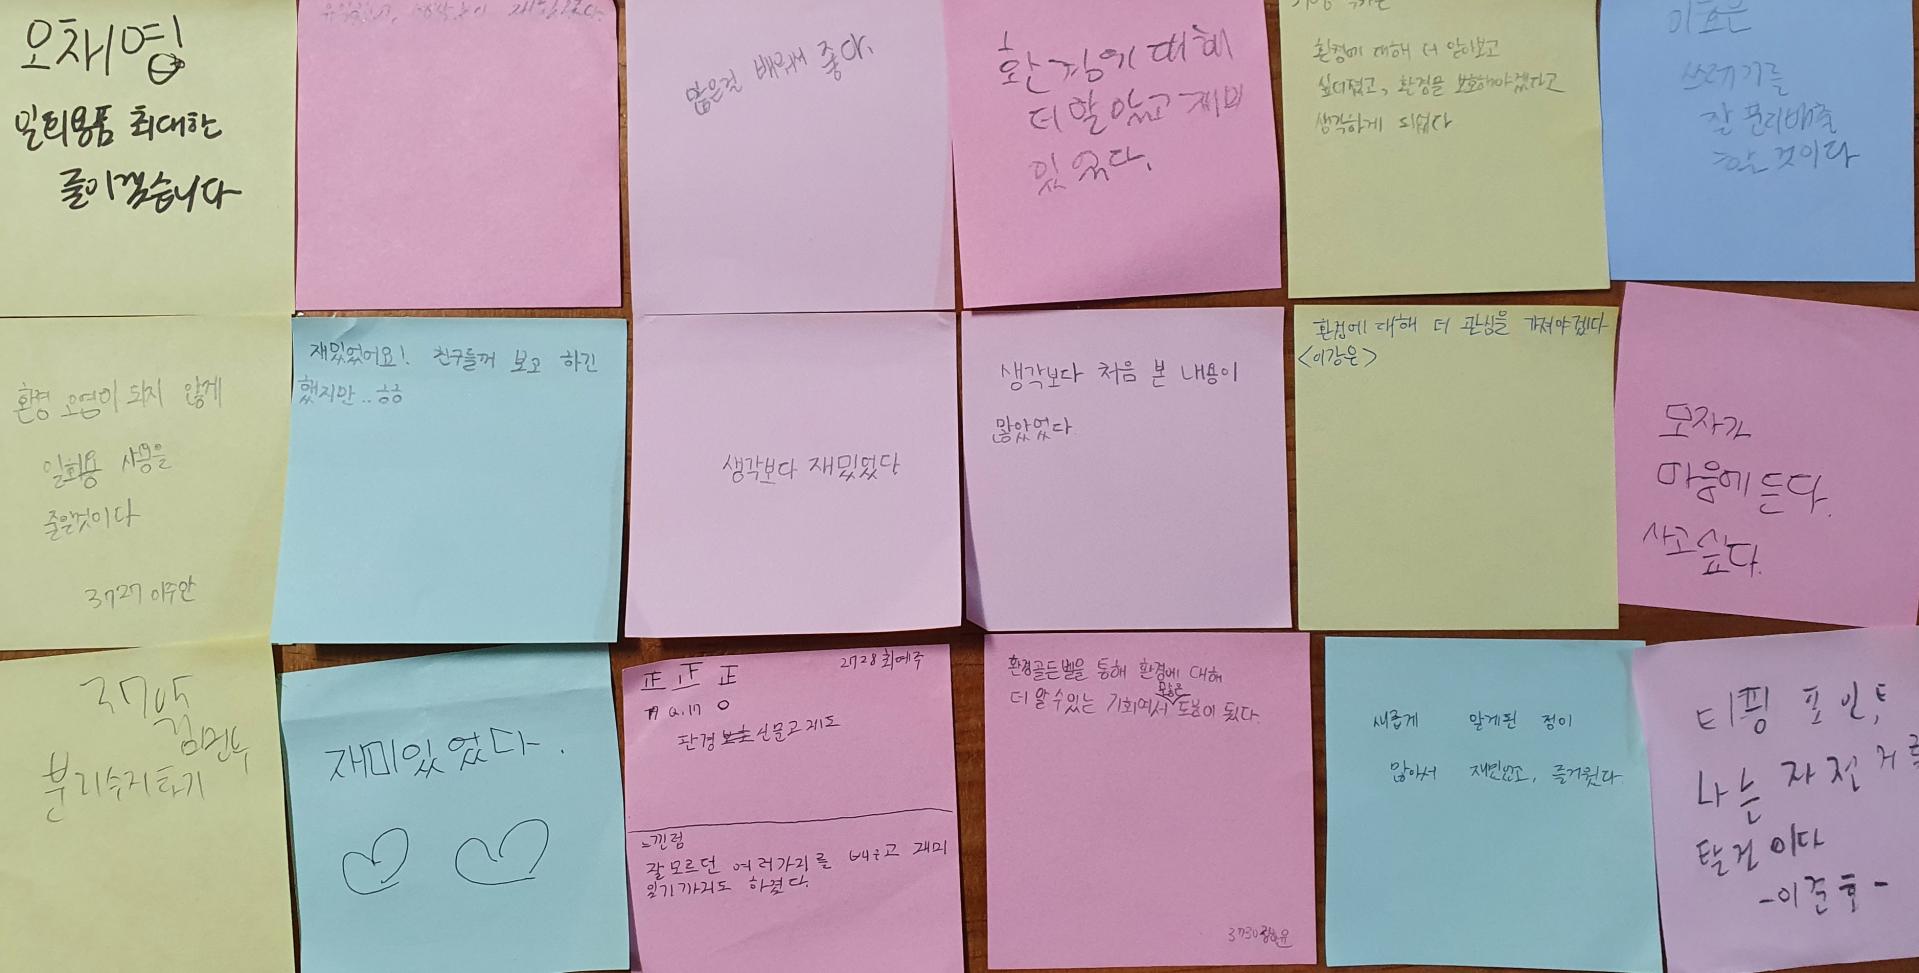 오채영
일회용품 최대한
줄이겠습니다
재밌었다.
많은걸 배워서 좋다.
환경에 대해
더 잘 알았고 재미
있었다.
환경에 대해 더 알아보고
싶어졌고, 환경을 보호해야겠다고
생각하게 되었다
쓰레기를
잘 분리배출
할 것이다
환경 오염이 되지 않게
일회용 사용을
줄일것이다
3727 이주안
재밌었어요! 친구들꺼 보고 하긴
했지만..ㅎㅎ
생각보다 재밌었다
생각보다 처음 본 내용이
많았었다
환경에 대해 더 관심을 가져야겠다
<이강은>
모자가
마음에 든다.
사고싶다.
3705
분리수거하기
재미있었다.
正 正 正
2728 최예주
환경 신문고제도
느낀점
잘모르던 여러가지를 배우고 재미
있기까지도 하였다.
환경골든벨을 통해 환경에 대해
더 알 수 있는 기회여서 많은 도움이 됬다.
3730
새롭게 알게된 점이
많아서 재밌었고, 즐거웠다.
티핑 포인트
나는 자전거를
탈 것이다
-이준호-